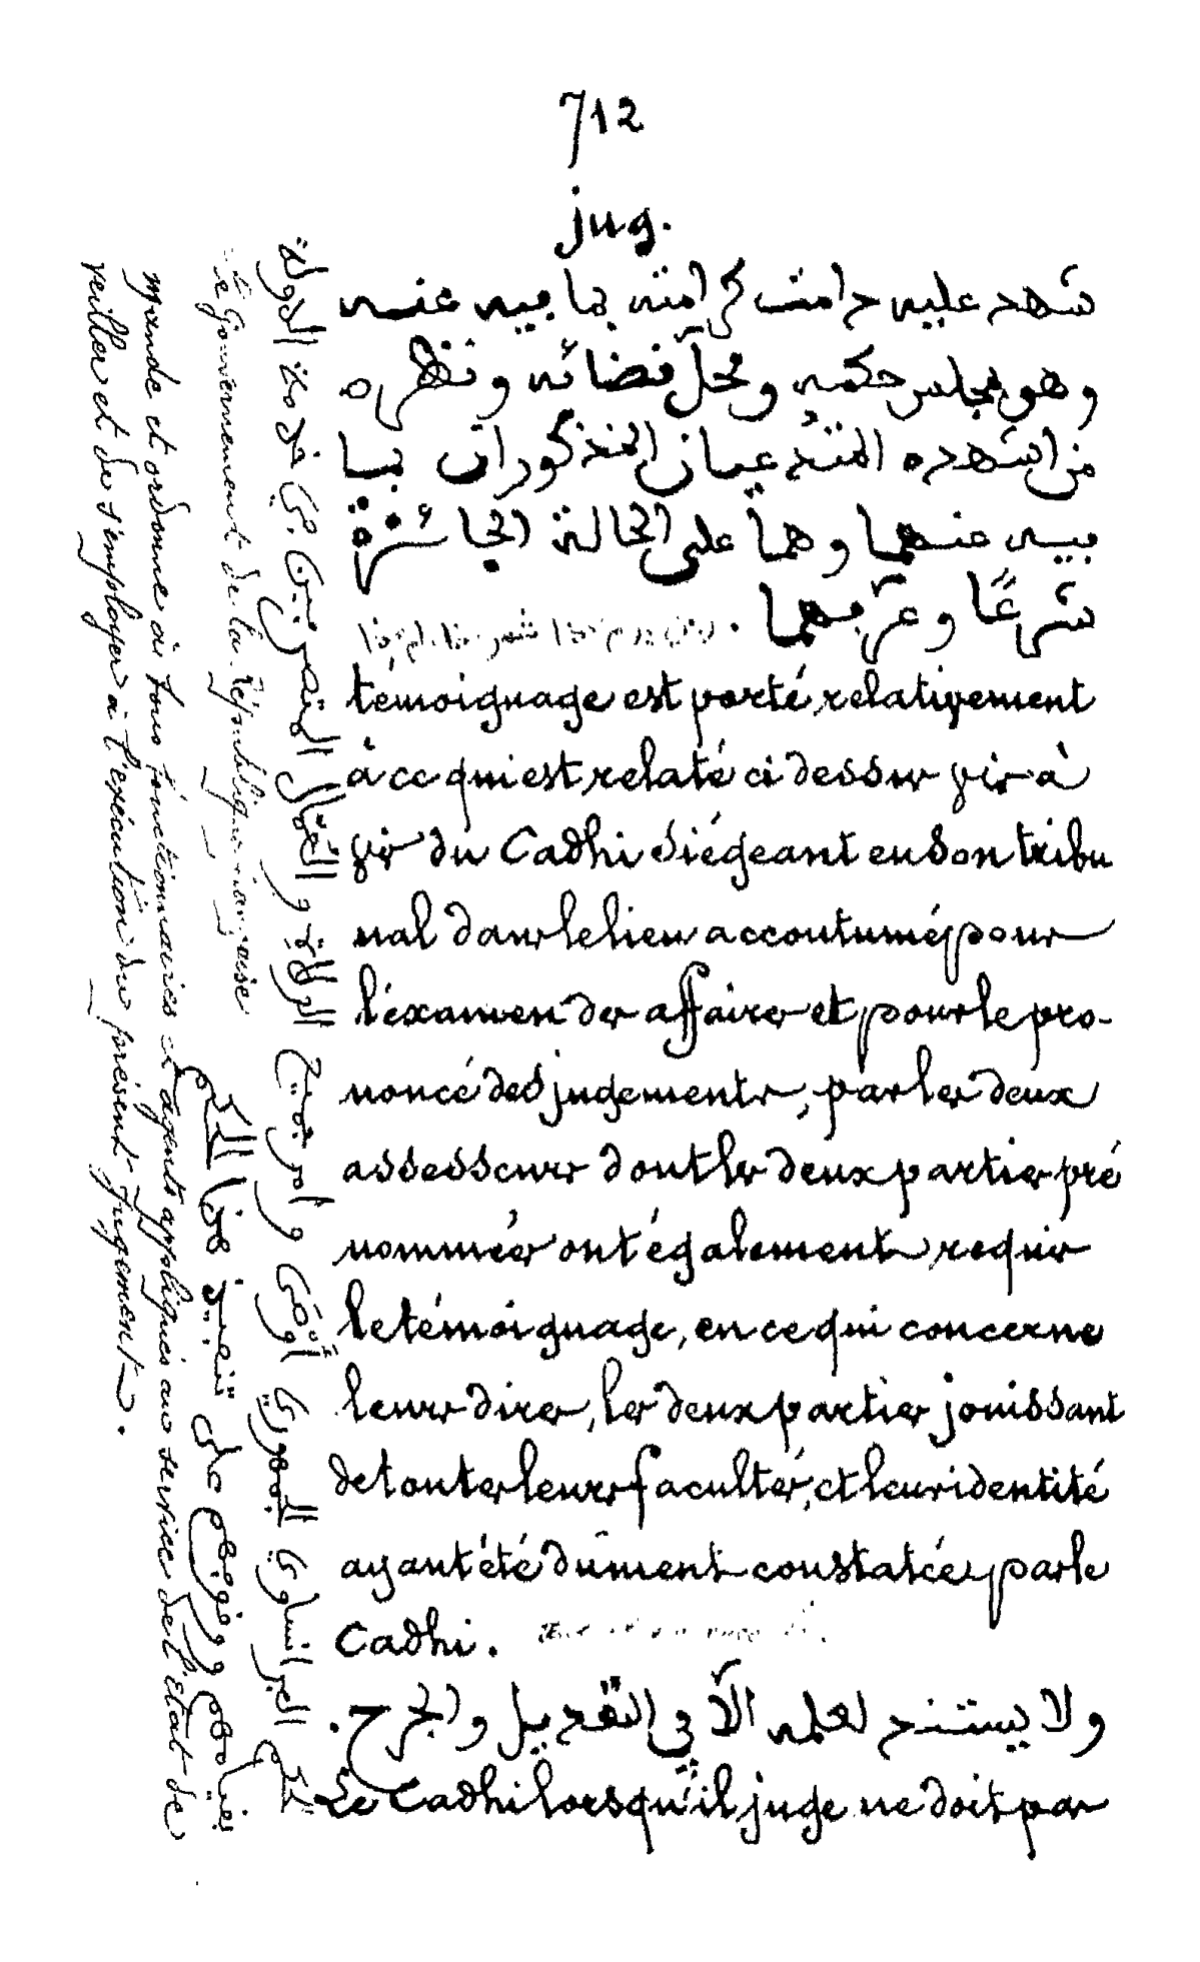 712
jug.
شهد عليه دامت كرامته بما فيه عنه
وهو بمجلس حكمه ومحلّ قضائه ونظره
من اشهده المتداعيان المذكوران بما
فيه عنهما وهما على الحالة الجائزة
شرعًا وعرّفهما
témoignage est porté relativement
à ce qui est relaté ci dessus vis à
vis du Cadhi siégeant en son tribu
nal dans le lieu accoutumé pour
l'éxamen des affaires et pour le pro-
noncé des jugements, par les deux
assesseurs dont les deux parties pré
nommées ont également requis
le témoignage, en ce qui concerne
leurs dires, les deux parties jouissant
de toutes leurs facultés, et leur identité
ayant été dûment constatée par le
Cadhi.
ولا يستند لعلمه الاّ في التعديل والجرح.
Le Cadhi lorsqu'il juge ne doit pas
الحكم الفرانساوي الجمهوري أوصى وأمر جميع الولاة و العمّال المتصرفين في خدمة الدولة
Le Gouvernement de la République française
بقيامهم ووقوفهم على تنفيذ هذا الحكم
mande et ordonne à tous fonctionnaires et agents appliqués au service de l'État de
veiller et de s'employer à l'exécution du présent jugement.